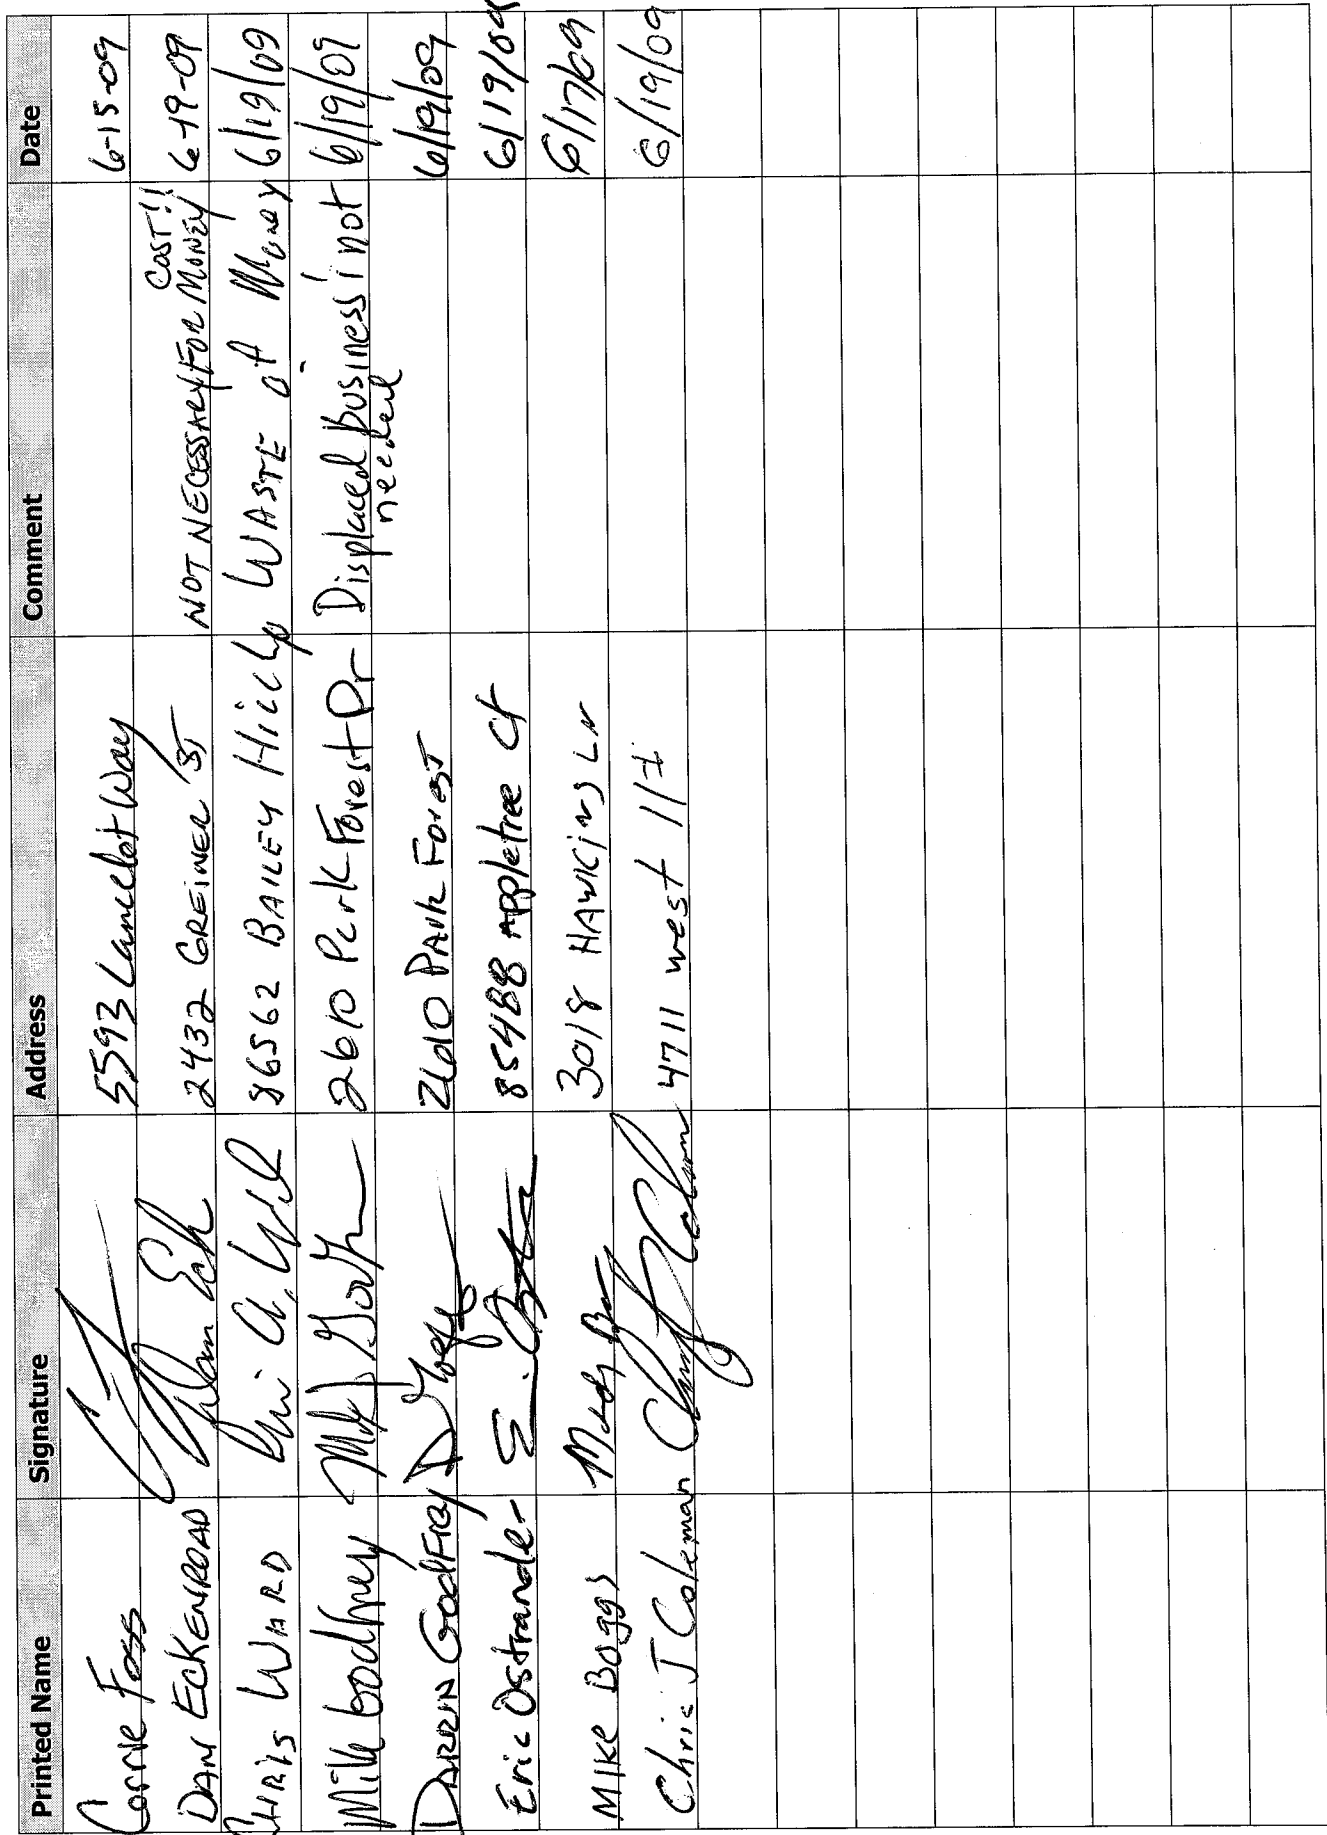 Printed Name Signature Address Comment Date
Corrie Foss 5593 Lancelot Way 6-15-09
DAN ECKENROAD Dan Eck 2432 GREINER ST NOT NECESSARY FOR MONEY COST!! 6-19-09
CHRIS WARD 86562 BAILEY HILL LP WASTE OF MONEY 6/19/09
Mike Godfrey 2610 Park Forest Dr Displaced business not 6/19/09
needed
DARRIN GODFREY 2610 PARK FOREST 6/19/09
Eric Ostrander 85488 Appletree Ct 6/19/09
MIKE Boggs 3018 HAWKINS LN 6/17/09
Chris J Coleman 4711 west 11th 6/19/09